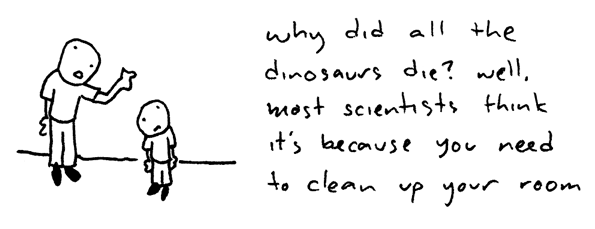 why did all the
dinosaurs die? well,
most scientists think
it's because you need
to clean up your room